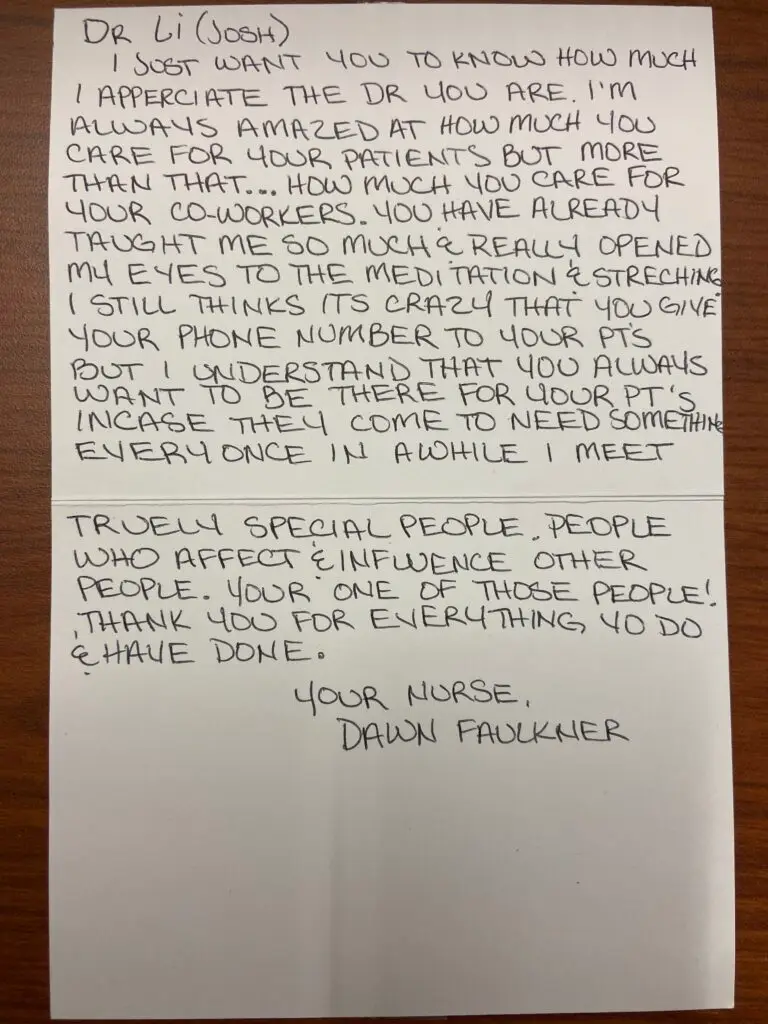 DR Li (JOSH)
I JUST WANT YOU TO KNOW HOW MUCH
I APPERCIATE THE DR YOU ARE. I'M
ALWAYS AMAZED AT HOW MUCH YOU
CARE FOR YOUR PATIENTS BUT MORE
THAN THAT... HOW MUCH YOU CARE FOR
YOUR CO-WORKERS. YOU HAVE ALREADY
TAUGHT ME SO MUCH & REALLY OPENED
MY EYES TO THE MEDITATION & STRECHING
I STILL THINKS ITS CRAZY THAT YOU GIVE
YOUR PHONE NUMBER TO YOUR PT'S
BUT I UNDERSTAND THAT YOU ALWAYS
WANT TO BE THERE FOR YOUR PT'S
INCASE THEY COME TO NEED SOMETHING
EVERY ONCE IN AWHILE I MEET
TRUELY SPECIAL PEOPLE. PEOPLE
WHO AFFECT & INFLUENCE OTHER
PEOPLE. YOUR ONE OF THOSE PEOPLE!
THANK YOU FOR EVERYTHING YO DO
& HAVE DONE.
YOUR NURSE,
DAWN FAULKNER